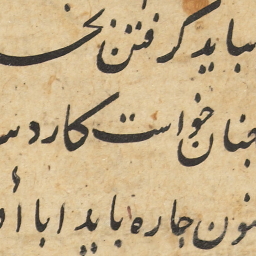 نباید گرفتن بخ
چنان خواست کار دس
نون چاره باید ابا أ